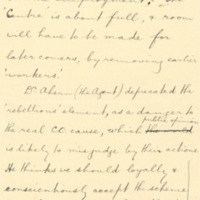 Centre' is about full, & room
will have to be made for
later comers, by removing earlier
'workers.'
Dr Ahern (the Agent) deprecated the
'rebellious' element, as a danger to
public opinion
the real CO. cause, which the world
is likely to misjudge by their actions.
He thinks we should loyally &
conscientiously accept the scheme,